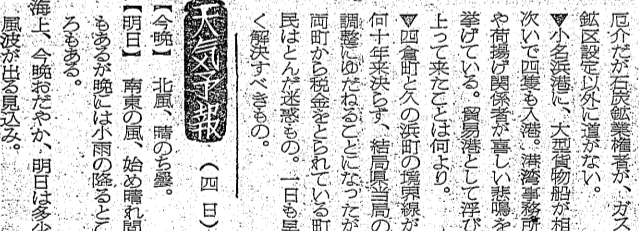 厄介だが石炭鉱業権者が、ガス
鉱区設定以外に道がない。
▼小名浜港に、大型貨物船が相
次いで四隻も入港。港湾事務所
や荷揚げ関係者が喜しい悲鳴を
挙げている。貿易港として浮び
上って来たことは何より。
▼四倉町と久の浜町の境界線が
何十年来決らず、結局県当局の
調整にゆだねることになったが
両町から税金をとられている町
民はとんだ迷惑もの。一日も早
く解決すべきもの。
天気予報 (四日)
【今晩】 北風、晴のち曇。
【明日】 南東の風、始め晴れ間
もあるが晩には小雨の降るとこ
ろもある。
海上、今晩おだやか、明日は多少
風波が出る見込み。